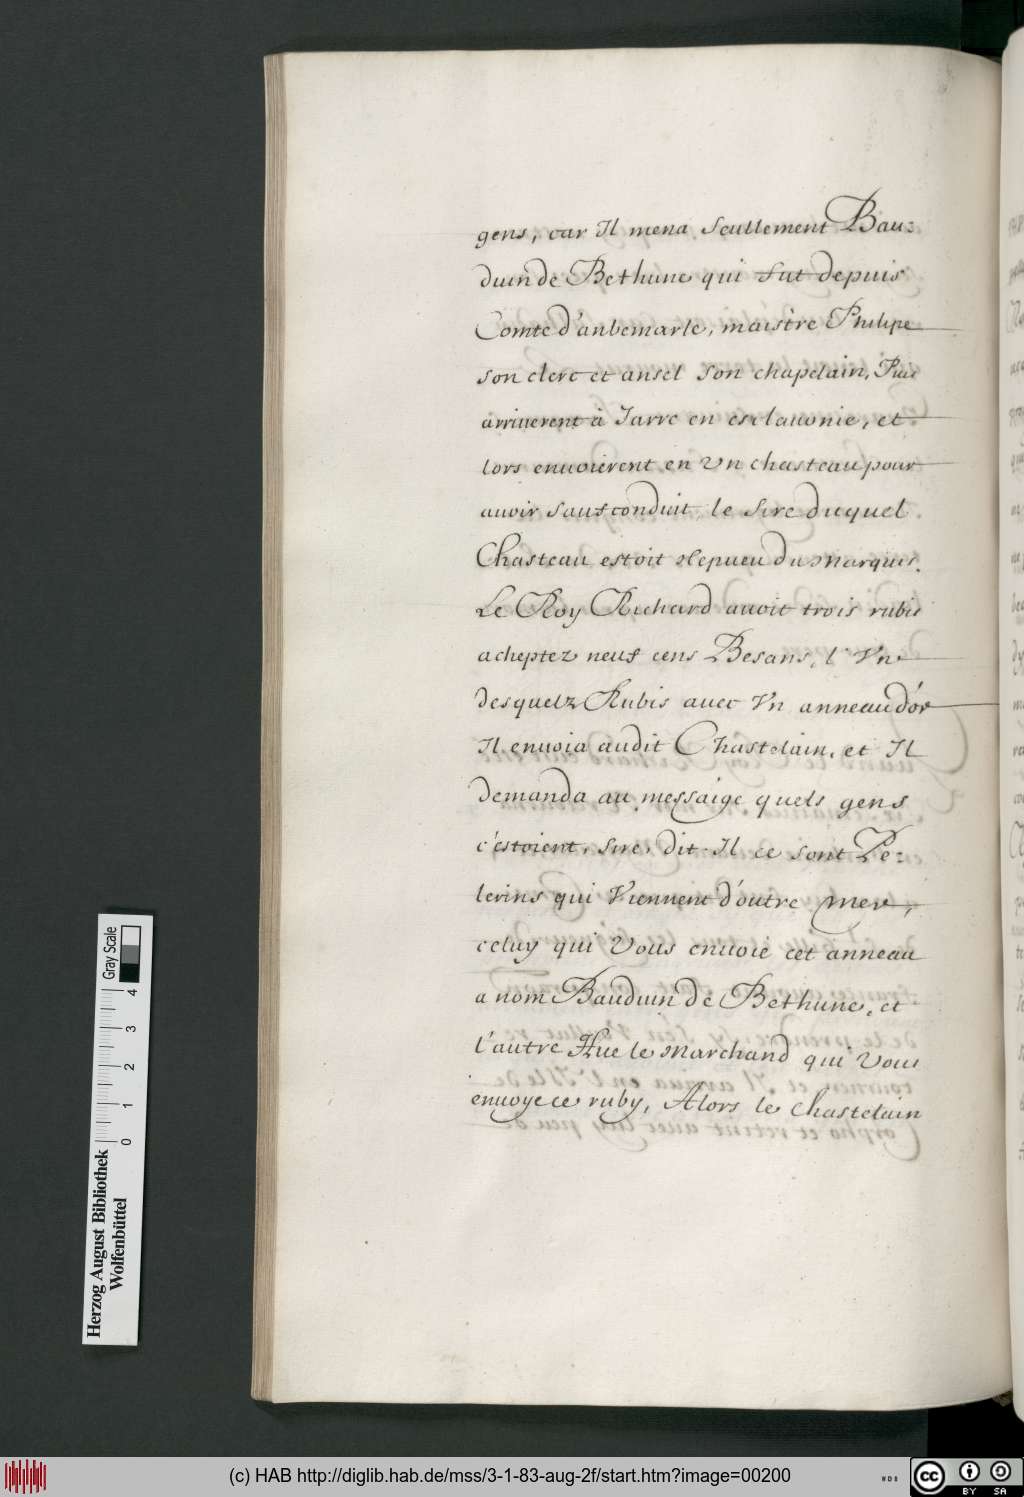 gens, car Il mena seullement Bau:
duin de Bethune qui fut depuis
Comte d'anbemarle, maistre Philipe
son clerc et ansel son chapelain, Puis
arriuerent à Jarre en esclauonie, et
lors enuoierent en Vn chasteau pour
auoir saufconduit, le sire duquel
Chasteau estoit Nepueu du Marquis.
Le Roy Richard auoit trois rubis
acheptez neuf cens Besans, l'Vn
desquelz Rubis auec Vn anneau d'or
Il enuoia audit Chastelain, et Il
demanda au messaige quels gens
c'estoient, sire, dit Il ce sont Pe:
lerins qui Viennent d'outre mer,
celuy qui Vous enuoie cet anneau
a nom Bauduin de Bethune, et
l'autre Hue le Marchand qui Vous
enuoye ce ruby, Alors le Chastelain
Herzog August Bibliothek
Wolfenbüttel
0 1 2 3 4
Gray Scale
(c) HAB http://diglib.hab.de/mss/3-1-83-aug-2f/start.htm?image=00200
WDB
cc
BY SA